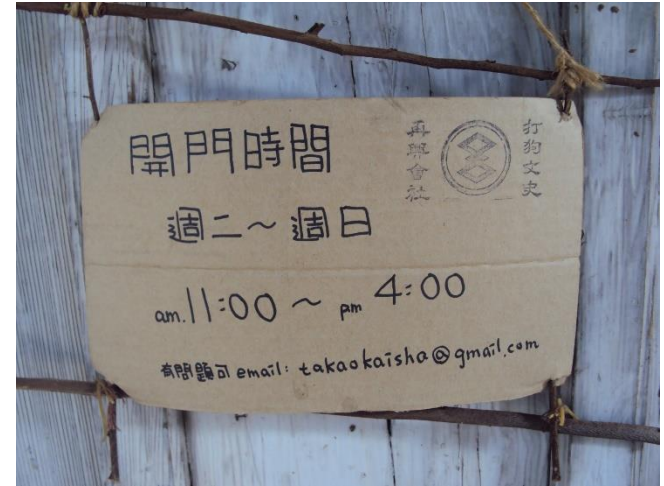 開門時間
打狗文史
再興會社
週二～週日
am.11:00～pm 4:00
有問題可email: takaokaisha@gmail.com